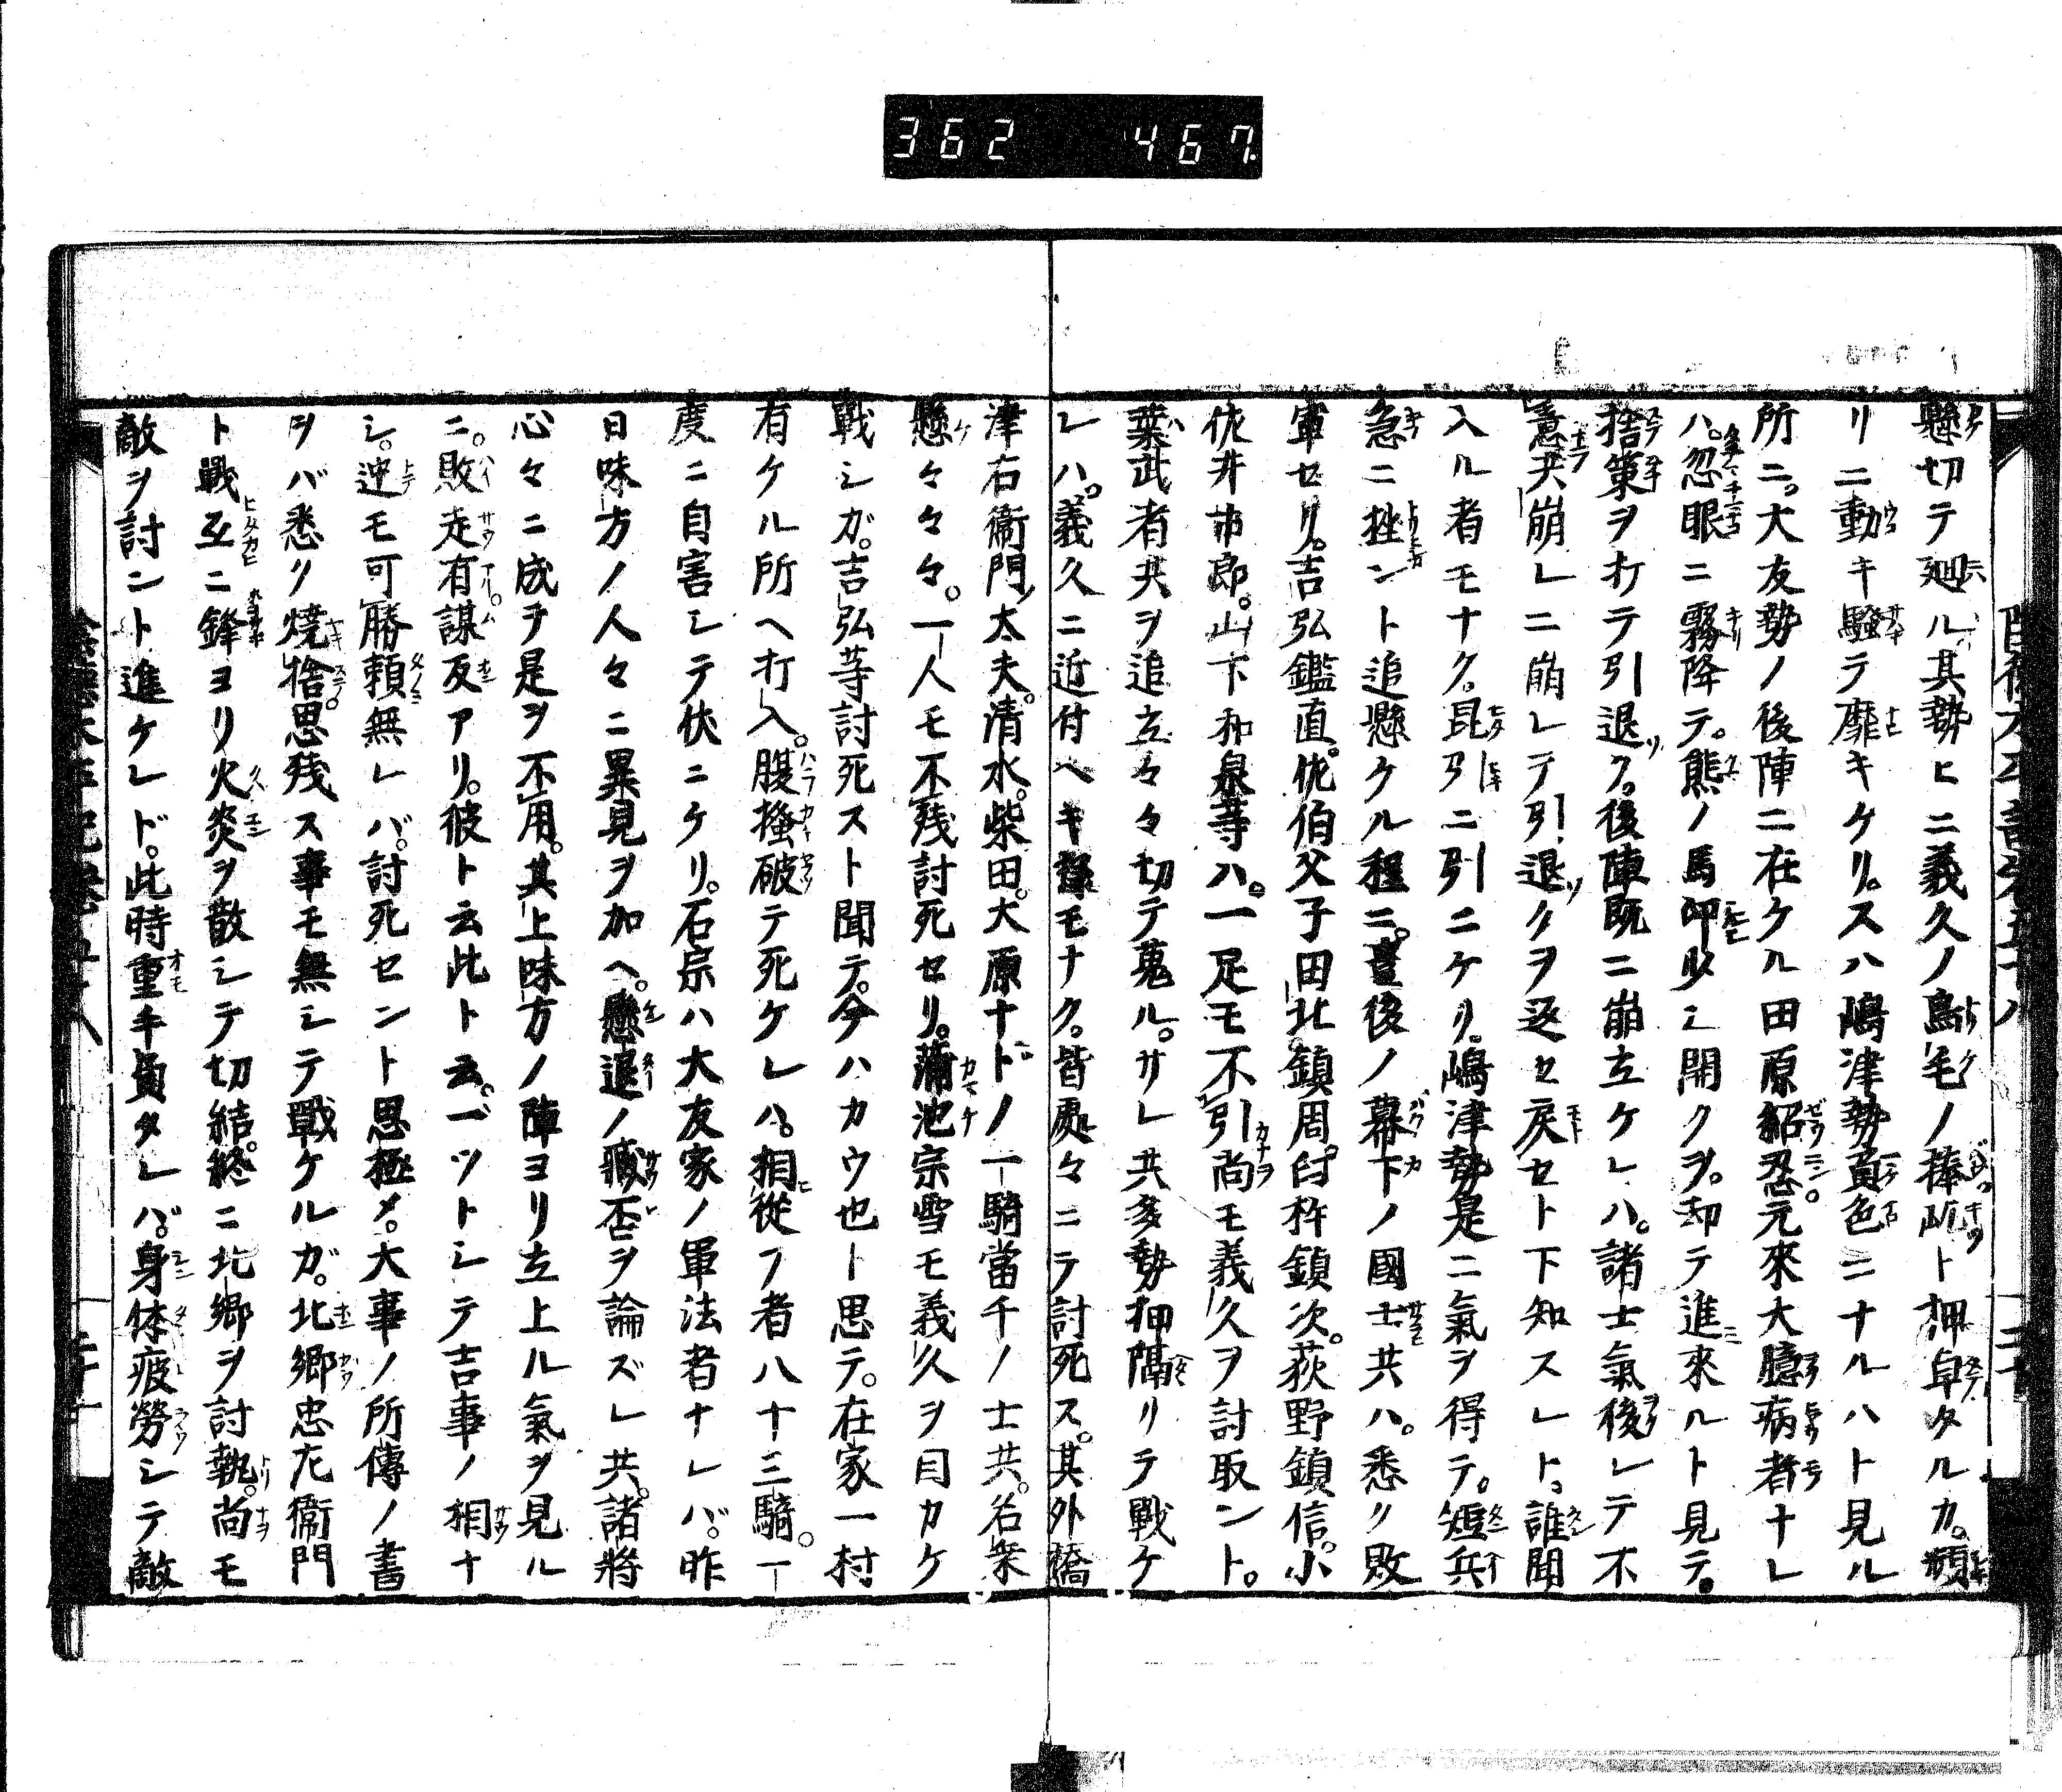 362 467
懸切テ廻ル其勢ヒニ義久ノ鳥毛ノ捧ト押タルカ。頻
リニ動キ騒テ靡キケリ。スハ嶋津勢負色ニナルハト見ル
所ニ。大友勢ノ後陣ニ在ケル田原紹忍元來大臆病者ナレ
ハ。忽眼ニ霧降テ。熊ノ馬印少シ開クヲ。却テ進來ルト見テ。
捨策ヲ打テ引退ク。後陣既ニ崩立ケレハ。諸士氣後レテ不
意共崩レニ崩レテ引退クヲ返セ戻セト下知スレト。誰聞
入ル者モナク。昆引ニ引ニケリ。嶋津勢是ニ氣ヲ得テ。短兵
急ニ挫ント追懸ケル程ニ。豊後ノ幕下ノ國士共ハ。悉ク敗
軍セリ。吉弘鑑直。佐伯父子田北鎮周。臼杵鎮次。荻野鎮信。小
佐井市郎。山下和泉等ハ。一足モ不引尚モ義久ヲ討取ント。
葉武者共ヲ追立々々切テ蒐ル。サレ共多勢押隔リテ戰ケ
レハ。義久ニ近付ヘキ様モナク。皆處々ニテ討死ス。其外橋
津右衞門太夫。清水。柴田。大原ナドノ一騎當千ノ士共。名衆
懸々々々。一人モ不残討死セリ。蒲池宗雪モ義久ヲ目カケ
戰シガ。吉弘等討死スト聞テ。今ハカウ也ト思テ。在家一村
有ケル所ヘ打入。腹掻破テ死ケレハ。相從フ者八十三騎。一
度ニ自害シテ伏ニケリ。石宗ハ大友家ノ軍法者ナレバ。昨
日味方ノ人々ニ異見ヲ加ヘ。懸退ノ臧否ヲ論ズレ共。諸將
心々ニ成テ是ヲ不用。其上味方ノ陣ヨリ立上ル氣ヲ見ル
ニ。敗走有謀反アリ。彼ト云此ト云。一ツトシテ吉事ノ相ナ
シ。迚モ可勝頼無レバ。討死セント思極メ。大事ノ所傳ノ書
ヲバ悉ク燒捨。思残ス事モ無シテ戰ケルガ。北郷忠左衞門
ト戰互ニ鋒ヨリ火炎ヲ散シテ切結。終ニ北郷ヲ討執。尚モ
敵ヲ討ント進ケレド。此時重手負タレバ。身体疲勞シテ敵